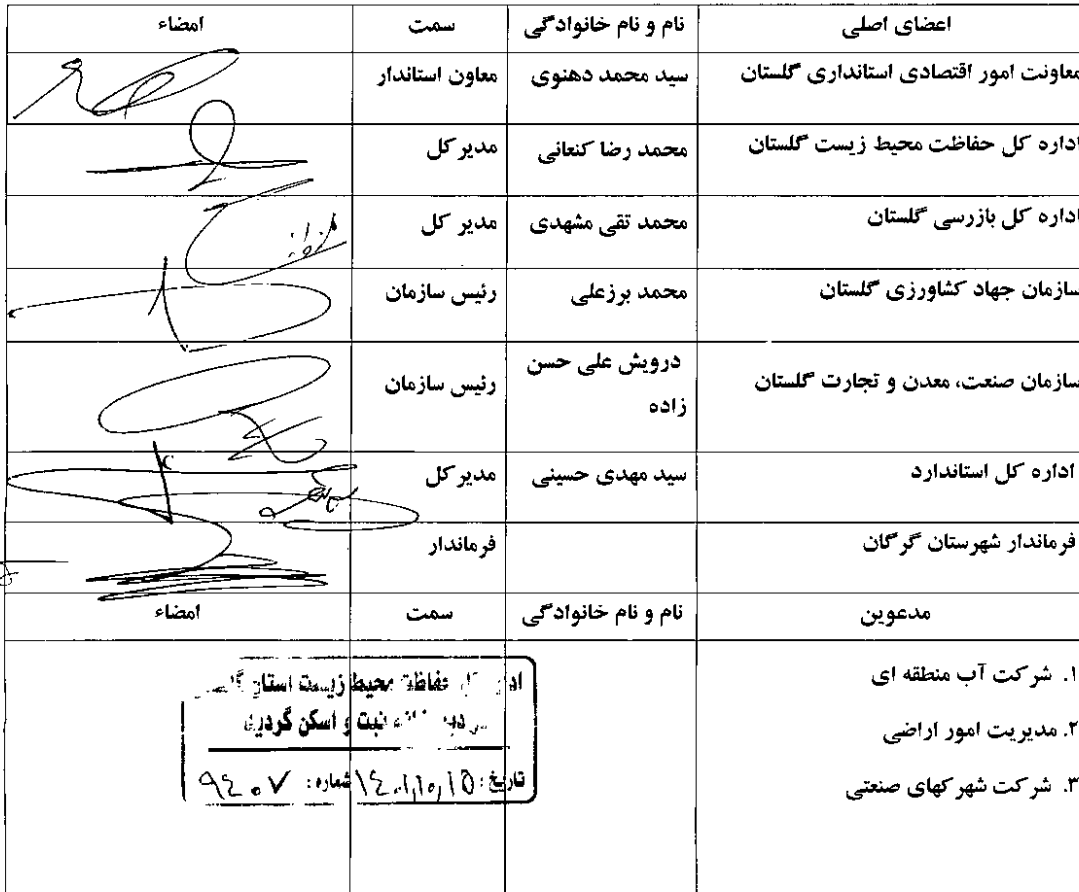 اعضای اصلی نام و نام خانوادگی سمت امضاء
معاونت امور اقتصادی استانداری گلستان سید محمد دهنوی معاون استاندار
اداره کل حفاظت محیط زیست گلستان محمد رضا کنعانی مدیر کل
اداره کل بازرسی گلستان محمد تقی مشهدی مدیر کل
سازمان جهاد کشاورزی گلستان محمد برزعلی رئیس سازمان
سازمان صنعت، معدن و تجارت گلستان درویش علی حسن رئیس سازمان
زاده
اداره کل استاندارد سید مهدی حسینی مدیر کل
فرماندار شهرستان گرگان فرماندار
مدعوین نام و نام خانوادگی سمت امضاء
۱. شرکت آب منطقه ای
۲. مدیریت امور اراضی
۳. شرکت شهرکهای صنعتی
حفاظت محیط زیست استان
ثبت و اسکن گردید
تاریخ: ۱۴۰۱,۱۰,۱۵ شماره: ۹۴۰۷